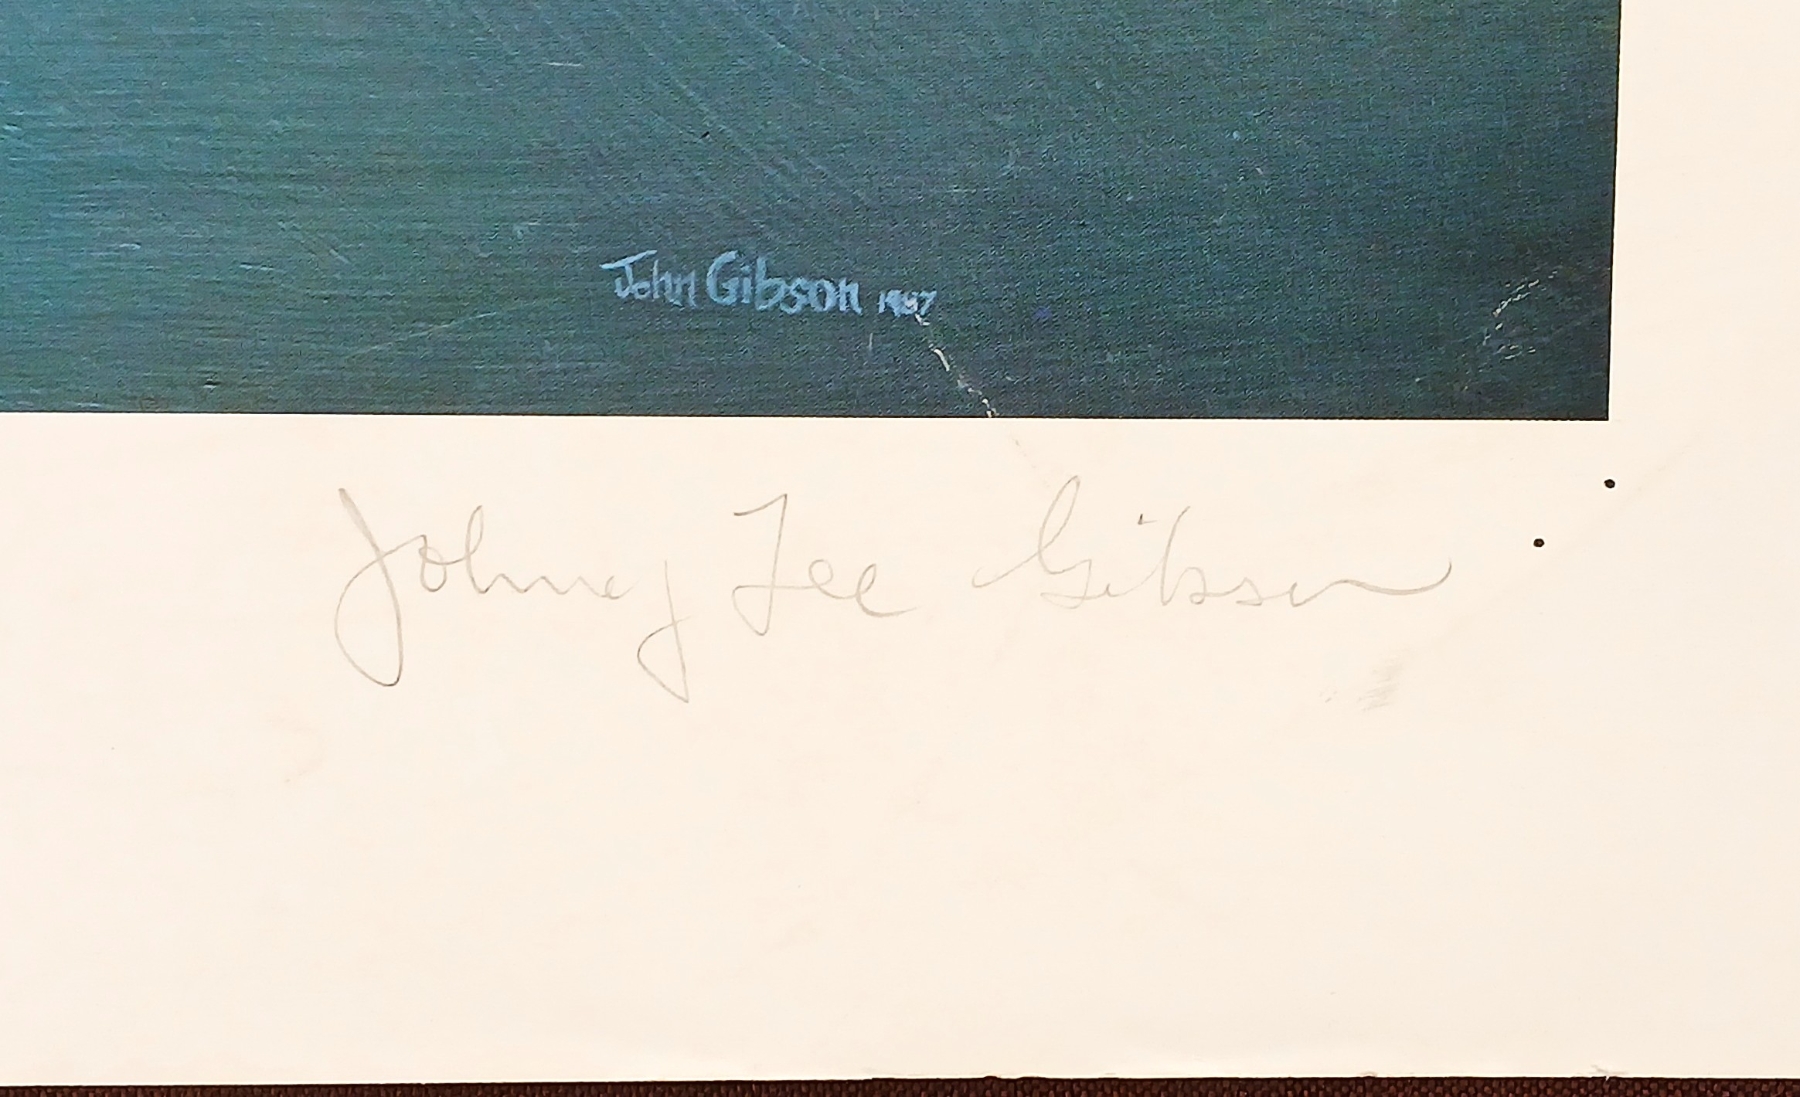 John Gibson 1987
Johney Lee Gibson